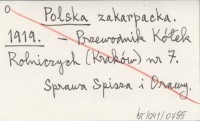 Polska zakarpacka.
1919. – Przewodnik Kółek
Rolniczych (Kraków) nr 7.
Sprawa Spisza i Orawy.